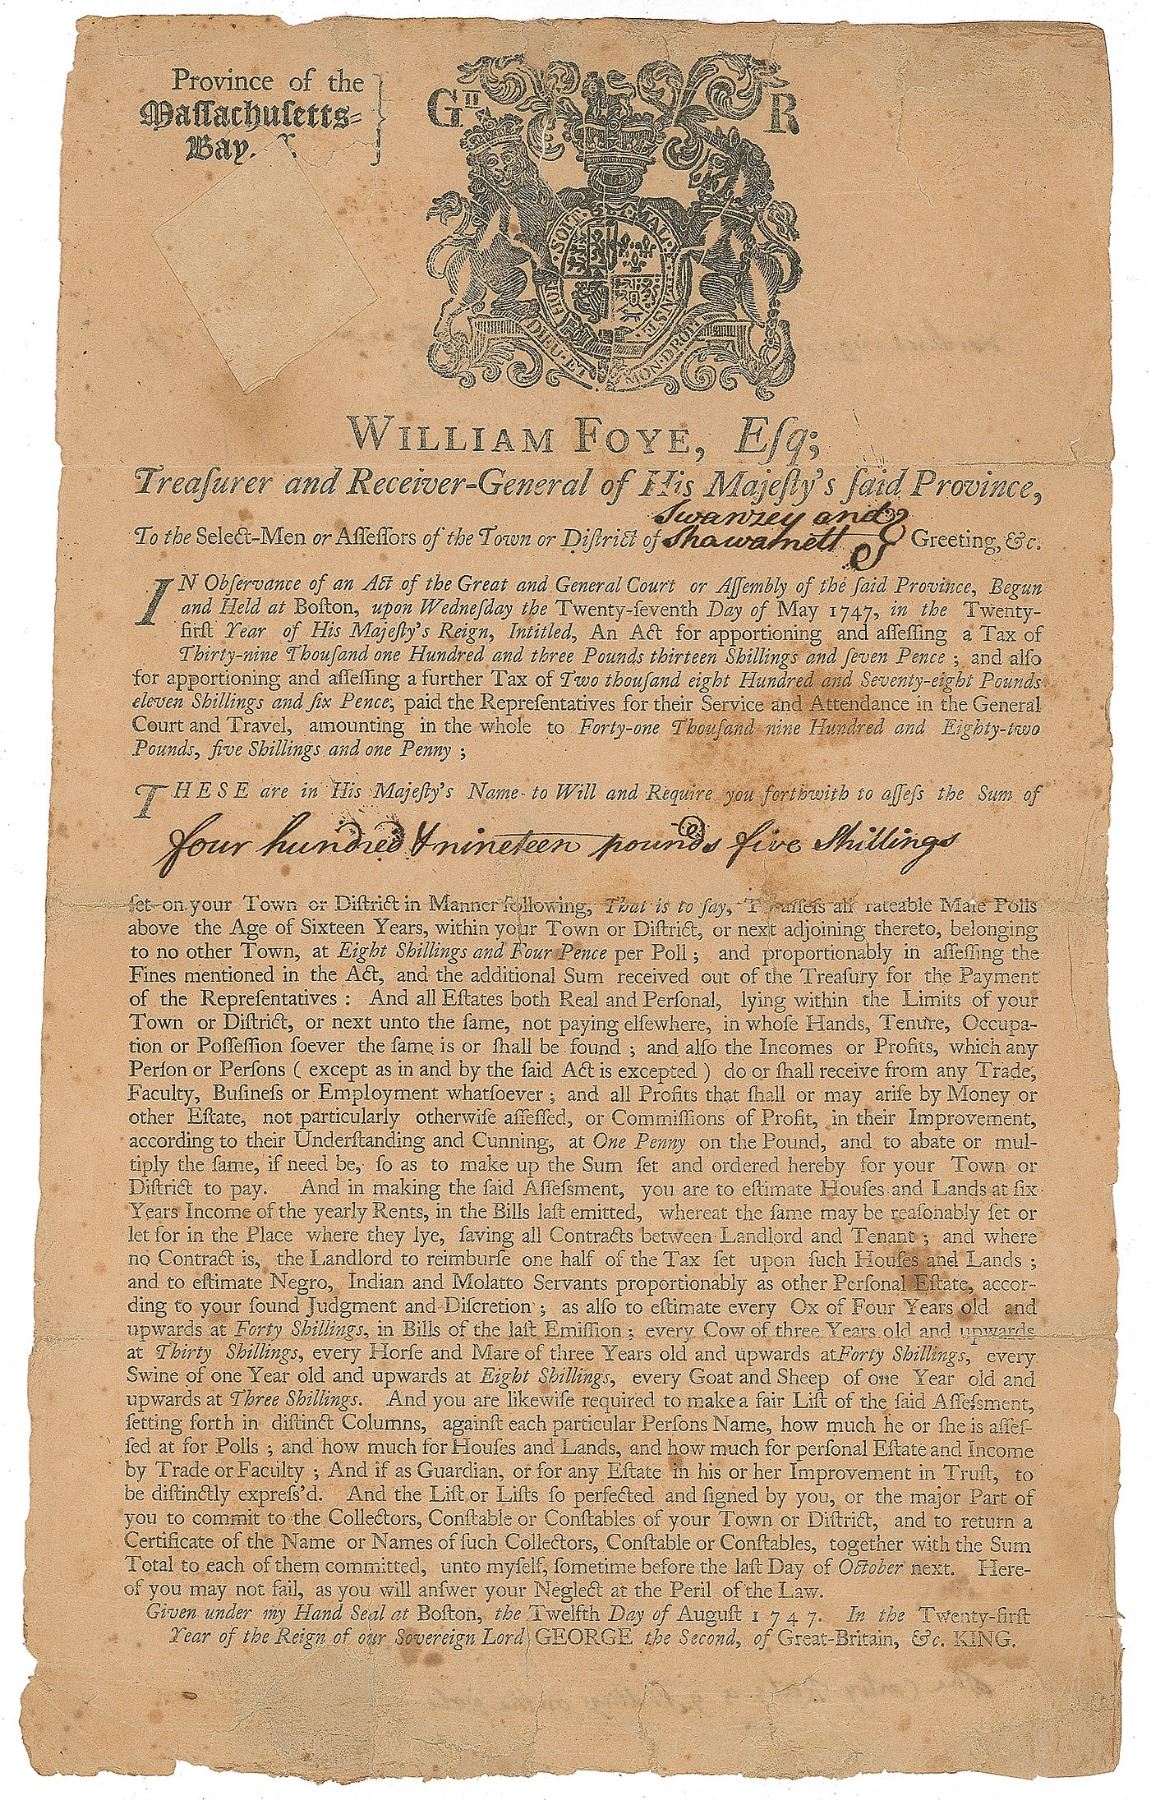 Province of the
Maſſachuſetts-
Bay.
GII R
HONI SOIT QUI MAL Y
DIEU ET MON DROIT
WILLIAM FOYE, Eſq;
Treaſurer and Receiver-General of His Majeſty's ſaid Province,
Swanzey and
To the Select-Men or Aſſeſſors of the Town or Diſtrict of Shawamett Greeting, &c.
IN Obſervance of an Act of the Great and General Court or Aſſembly of the ſaid Province, Begun
and Held at Boſton, upon Wedneſday the Twenty-ſeventh Day of May 1747, in the Twenty-
firſt Year of His Majeſty's Reign, Intitled, An Act for apportioning and aſſeſſing a Tax of
Thirty-nine Thouſand one Hundred and three Pounds thirteen Shillings and ſeven Pence ; and alſo
for apportioning and aſſeſſing a further Tax of Two thouſand eight Hundred and Seventy-eight Pounds
eleven Shillings and ſix Pence, paid the Repreſentatives for their Service and Attendance in the General
Court and Travel, amounting in the whole to Forty-one Thouſand nine Hundred and Eighty-two
Pounds, five Shillings and one Penny ;
THESE are in His Majeſty's Name to Will and Require you forthwith to aſſeſs the Sum of
four hundred & nineteen pounds five Shillings
ſet on your Town or Diſtrict in Manner following, That is to ſay, T aſſeſs all rateable Male Polls
above the Age of Sixteen Years, within your Town or Diſtrict, or next adjoining thereto, belonging
to no other Town, at Eight Shillings and Four Pence per Poll ; and proportionably in aſſeſſing the
Fines mentioned in the Act, and the additional Sum received out of the Treaſury for the Payment
of the Repreſentatives : And all Eſtates both Real and Perſonal, lying within the Limits of your
Town or Diſtrict, or next unto the ſame, not paying elſewhere, in whoſe Hands, Tenure, Occupa-
tion or Poſſeſſion ſoever the ſame is or ſhall be found ; and alſo the Incomes or Profits, which any
Perſon or Perſons ( except as in and by the ſaid Act is excepted ) do or ſhall receive from any Trade,
Faculty, Buſineſs or Employment whatſoever ; and all Profits that ſhall or may ariſe by Money or
other Eſtate, not particularly otherwiſe aſſeſſed, or Commiſſions of Profit, in their Improvement,
according to their Underſtanding and Cunning, at One Penny on the Pound, and to abate or mul-
tiply the ſame, if need be, ſo as to make up the Sum ſet and ordered hereby for your Town or
Diſtrict to pay. And in making the ſaid Aſſeſſment, you are to eſtimate Houſes and Lands at ſix
Years Income of the yearly Rents, in the Bills laſt emitted, whereat the ſame may be reaſonably ſet or
let for in the Place where they lye, ſaving all Contracts between Landlord and Tenant ; and where
no Contract is, the Landlord to reimburſe one half of the Tax ſet upon ſuch Houſes and Lands ;
and to eſtimate Negro, Indian and Molatto Servants proportionably as other Perſonal Eſtate, accor-
ding to your ſound Judgment and Diſcretion ; as alſo to eſtimate every Ox of Four Years old and
upwards at Forty Shillings, in Bills of the laſt Emiſſion ; every Cow of three Years old and upwards
at Thirty Shillings, every Horſe and Mare of three Years old and upwards at Forty Shillings, every
Swine of one Year old and upwards at Eight Shillings, every Goat and Sheep of one Year old and
upwards at Three Shillings. And you are likewiſe required to make a fair Liſt of the ſaid Aſſeſsment,
ſetting forth in diſtinct Columns, againſt each particular Perſons Name, how much he or ſhe is aſſeſ-
ſed at for Polls ; and how much for Houſes and Lands, and how much for perſonal Eſtate and Income
by Trade or Faculty ; And if as Guardian, or for any Eſtate in his or her Improvement in Truſt, to
be diſtinctly expreſs'd. And the Liſt or Liſts ſo perfected and ſigned by you, or the major Part of
you to commit to the Collectors, Conſtable or Conſtables of your Town or Diſtrict, and to return a
Certificate of the Name or Names of ſuch Collectors, Conſtable or Conſtables, together with the Sum
Total to each of them committed, unto myſelf, ſometime before the laſt Day of October next. Here-
of you may not fail, as you will anſwer your Neglect at the Peril of the Law.
Given under my Hand Seal at Boſton, the Twelfth Day of Auguſt 1747. In the Twenty-firſt
Year of the Reign of our Sovereign Lord GEORGE the Second, of Great-Britain, &c. KING.